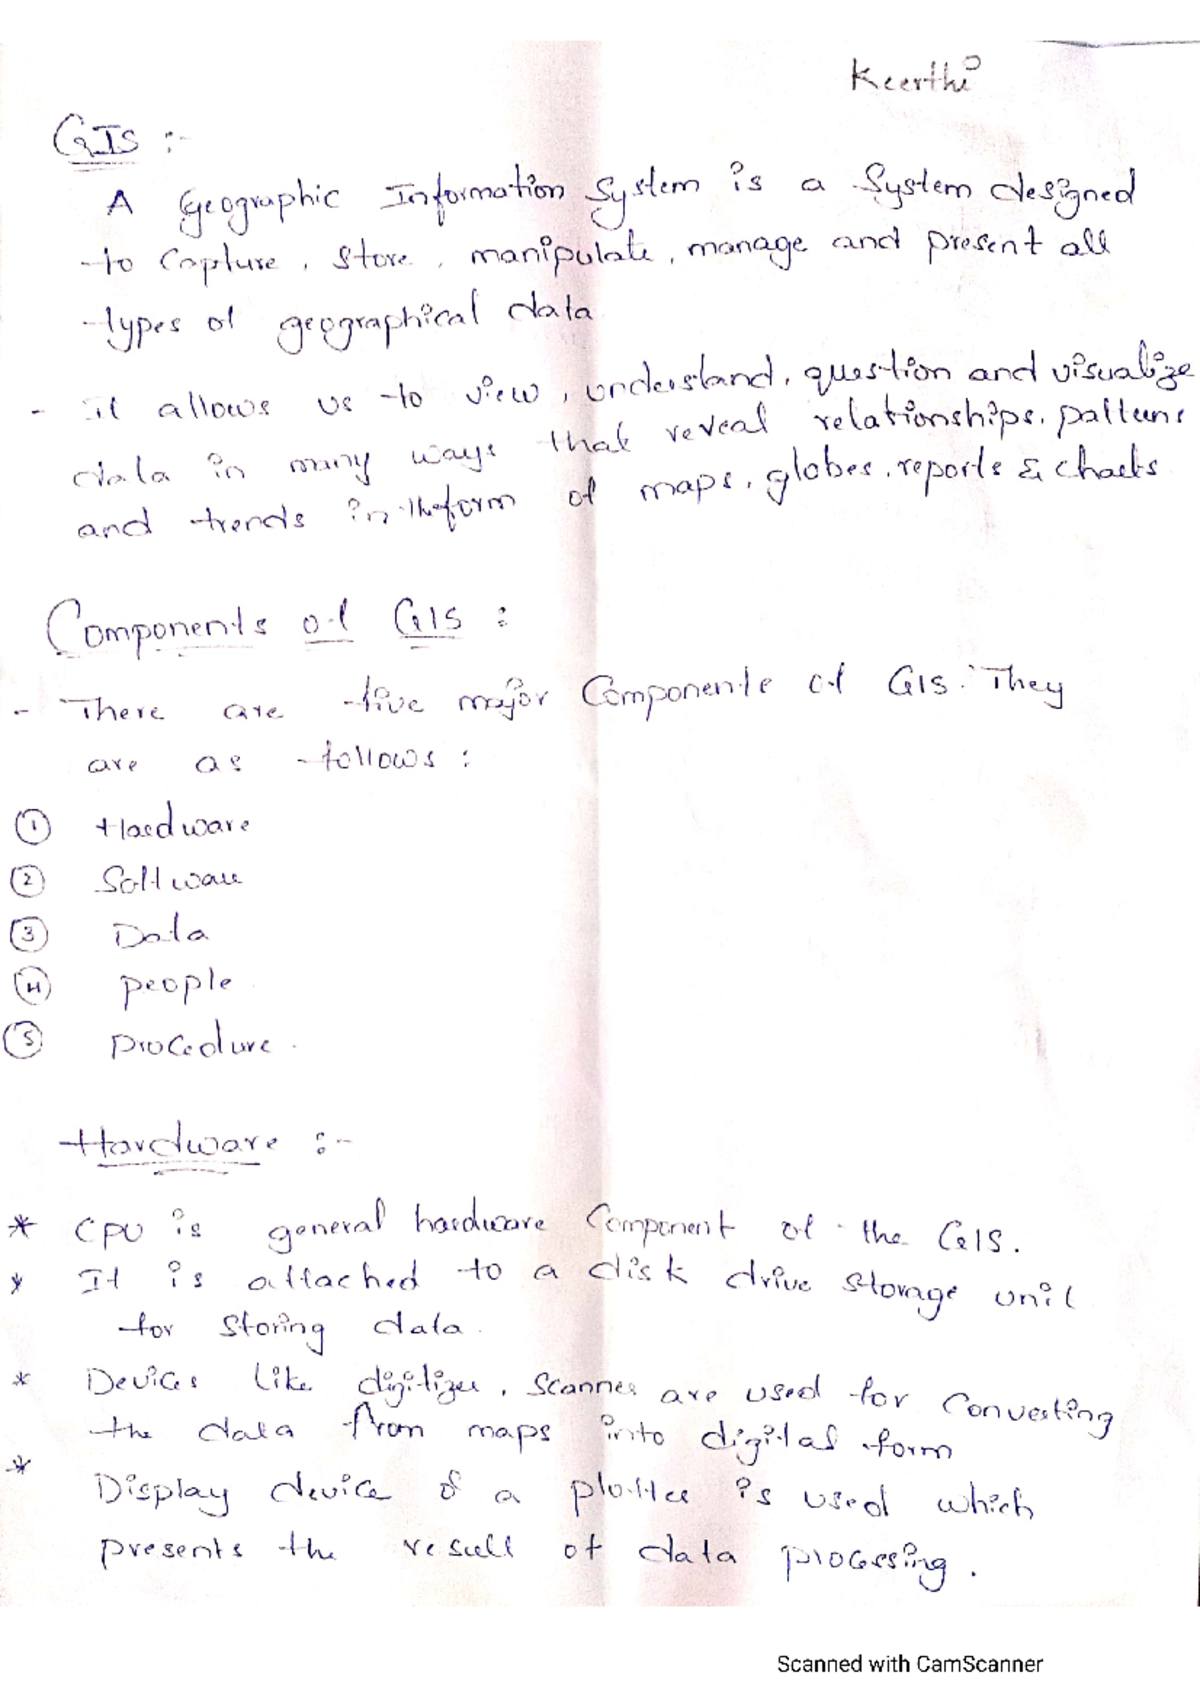 Keerthi
GIS :-
A Geographic Information System is a System designed
to Capture, store, manipulate, manage and present all
types of geographical data
- it allows us to view, understand, question and visualize
data in many ways that reveal relationships, patterns
and trends in the form of maps, globes, reports & charts
Components of GIS :
- There are five major Components of GIS. They
are as follows :
① Hardware
② Software
③ Data
④ people
⑤ procedure.
Hardware :-
* CPU is general hardware Component of the GIS.
* It is attached to a disk drive storage unit
for storing data.
* Devices like digitizer, scanner are used for Converting
the data from maps into digital form
* Display device & a plotter is used which
presents the result of data processing.
Scanned with CamScanner